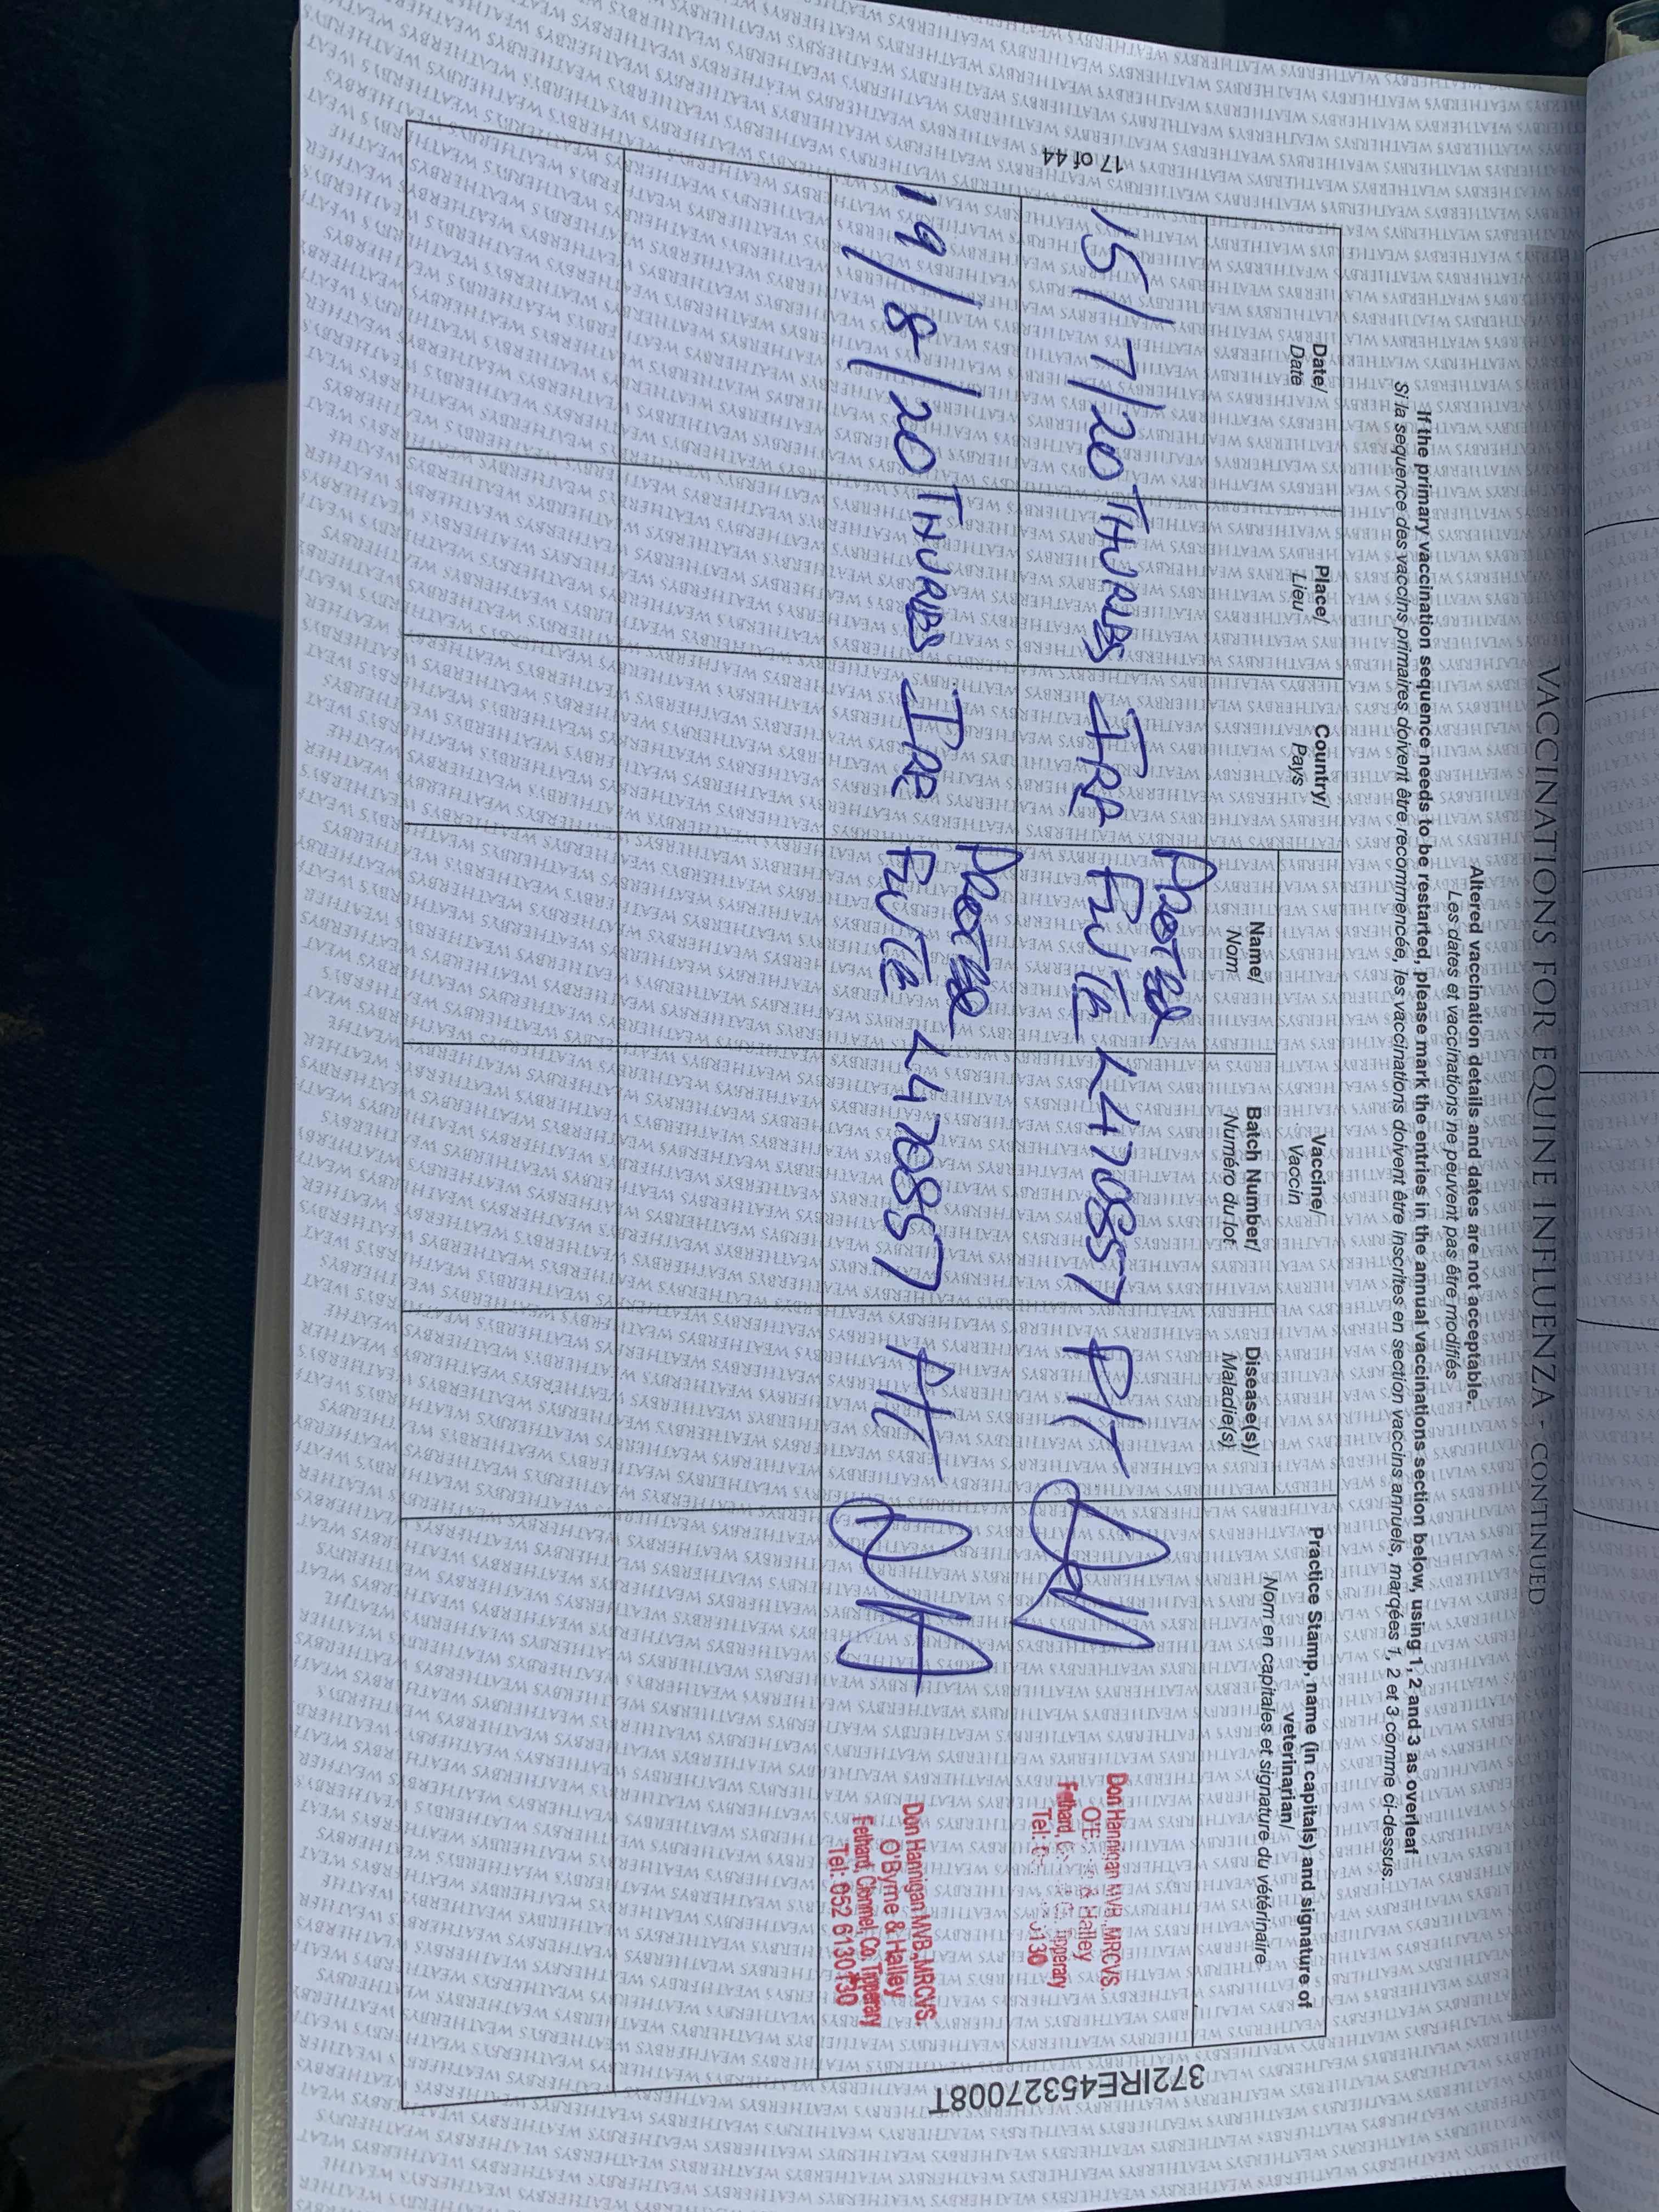 VACCINATIONS FOR EQUINE INFLUENZA - CONTINUED
Altered vaccination details and dates are not acceptable.
Les dates et vaccinations ne peuvent pas être modifiés
If the primary vaccination sequence needs to be restarted, please mark the entries in the annual vaccinations section below, using 1, 2 and 3 as overleaf
Si la sequence des vaccins primaires doivent être recommencée, les vaccinations doivent être inscrites en section vaccins annuels, marqées 1, 2 et 3 comme ci-dessus.
Date/
Date
Place/
Lieu
Country/
Pays
Vaccine/
Vaccin
Name/
Nom
Batch Number/
Numéro du lot
Disease(s)/
Maladie(s)
Practice Stamp, name (in capitals) and signature of
veterinarian/
Nom en capitales et signature du vétérinaire
15/7/20 THURLES IRE
PROTEQ
FLUTE L470857
Don Hannigan MVB, MRCVS.
& Halley
Fethard, Tipperary
Tel:
19/8/20 THURLES IRE
PROTEQ
FLUTE L470857
Don Hannigan MVB, MRCVS.
O'Byrne & Halley
Fethard, Clonmel, Co. Tipperary
Tel: 052 6130130
17 of 44
372IRE45327008T